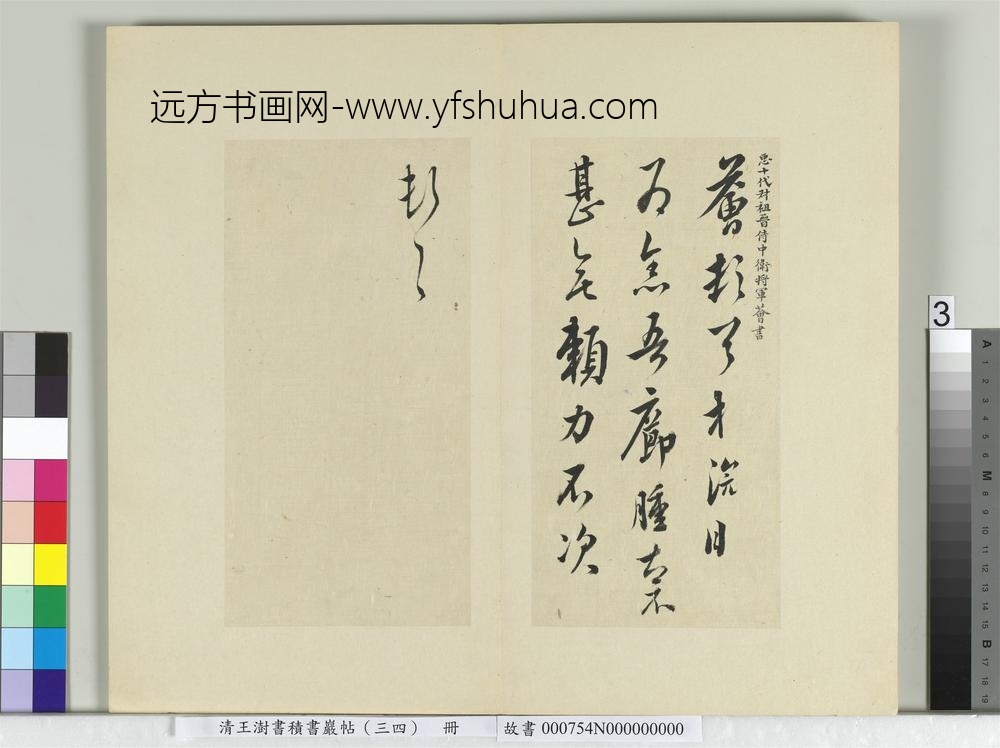 远方书画网-www.yfshuhua.com
十代祖晉侍中衛將軍薈書
薈頓首才月
為念吾腫
甚無賴力不次
頓首
3
清王澍書積書巖帖（三四） 冊
故書 000754N000000000
A 1 2 3 4 5 6 M 8 9 10 11 12 13 14 15 B 17 18 19